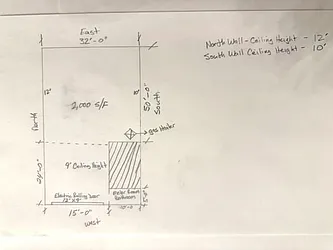 East
32'-0"
North Wall - Ceiling Height - 12'
South Wall Ceiling Height - 10'
12'
10'
2,000 S/F
50'-0"
South
North
Gas Heater
9' Ceiling Height
Electric Rolling Door
12' x 8'
Boiler Room
Bathroom
15'-0"
10'-0"
West